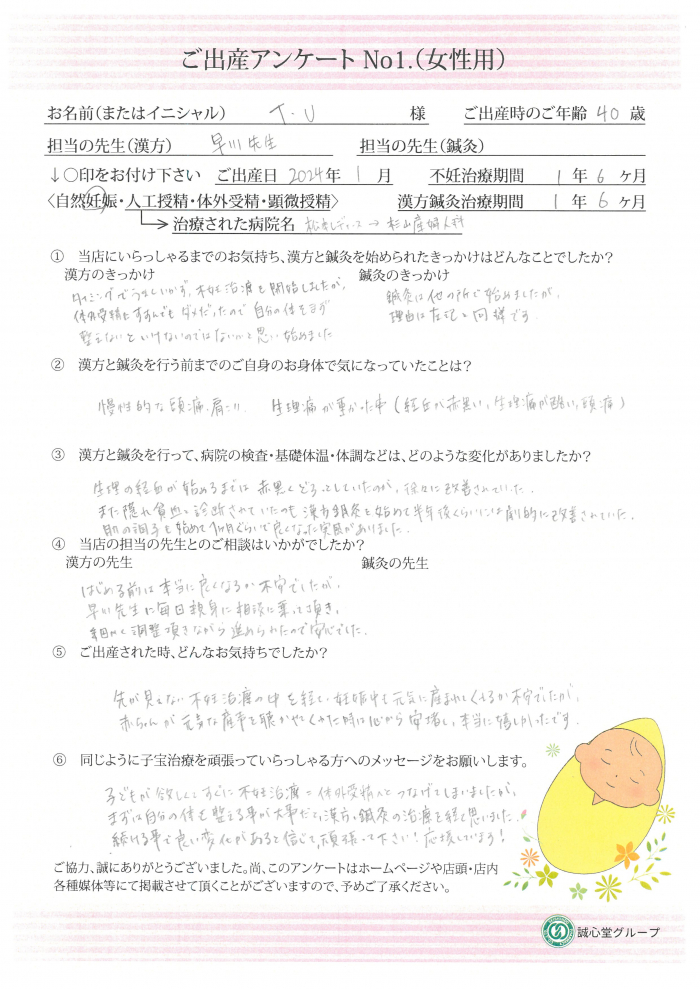 ご出産アンケート No1.（女性用）
お名前（またはイニシャル） T・U 様 ご出産時のご年齢 40 歳
担当の先生（漢方） 早川先生 担当の先生（鍼灸）
↓○印をお付け下さい ご出産日 2024年 1 月 不妊治療期間 1 年 6 ヶ月
〈自然妊娠・人工授精・体外受精・顕微授精〉 漢方鍼灸治療期間 1 年 6 ヶ月
治療された病院名 松本レディース → 杉山産婦人科
① 当店にいらっしゃるまでのお気持ち、漢方と鍼灸を始められたきっかけはどんなことでしたか？
漢方のきっかけ 鍼灸のきっかけ
タイミングでうまくいかず、不妊治療を開始しましたが、
体外受精にすすんでもダメだったので自分の体をまず
整えないといけないのではないかと思い始めました
鍼灸は他の所で始めましたが、
理由は左記と同様です。
② 漢方と鍼灸を行う前までのご自身のお身体で気になっていたことは？
慢性的な頭痛、肩こり、生理痛が重かった事（経血が赤黒い、生理痛が酷い、頭痛）
③ 漢方と鍼灸を行って、病院の検査・基礎体温・体調などは、どのような変化がありましたか？
生理の経血が始めるまでは赤黒くどろっとしていたのが、徐々に改善されていった。
また隠れ貧血と診断されていたのも漢方鍼灸を始めて半年後くらいには劇的に改善されていた。
肌の調子も始めて1ヶ月くらいで良くなった実感がありました。
④ 当店の担当の先生とのご相談はいかがでしたか？
漢方の先生 鍼灸の先生
はじめる前は本当に良くなるか不安でしたが、
早川先生に毎回親身に相談に乗って頂き、
細かく調整頂きながら進められたので安心でした。
⑤ ご出産された時、どんなお気持ちでしたか？
先が見えない不妊治療の中を経て、妊娠中も元気に産まれてくるか不安でしたが、
赤ちゃんが元気な産声を聴かせてくれた時は心から安堵し、本当に嬉しかったです。
⑥ 同じように子宝治療を頑張っていらっしゃる方へのメッセージをお願いします。
子どもが欲しくてすぐに不妊治療＝体外受精へとつなげてしまいましたが、
まずは自分の体を整える事が大事だと、漢方・鍼灸の治療を経て思いました。
続ける事で良い変化があると信じて、頑張って下さい！応援しています！
ご協力、誠にありがとうございました。尚、このアンケートはホームページや店頭・店内
各種媒体等にて掲載させて頂くことがございますので、予めご了承ください。
誠心堂グループ